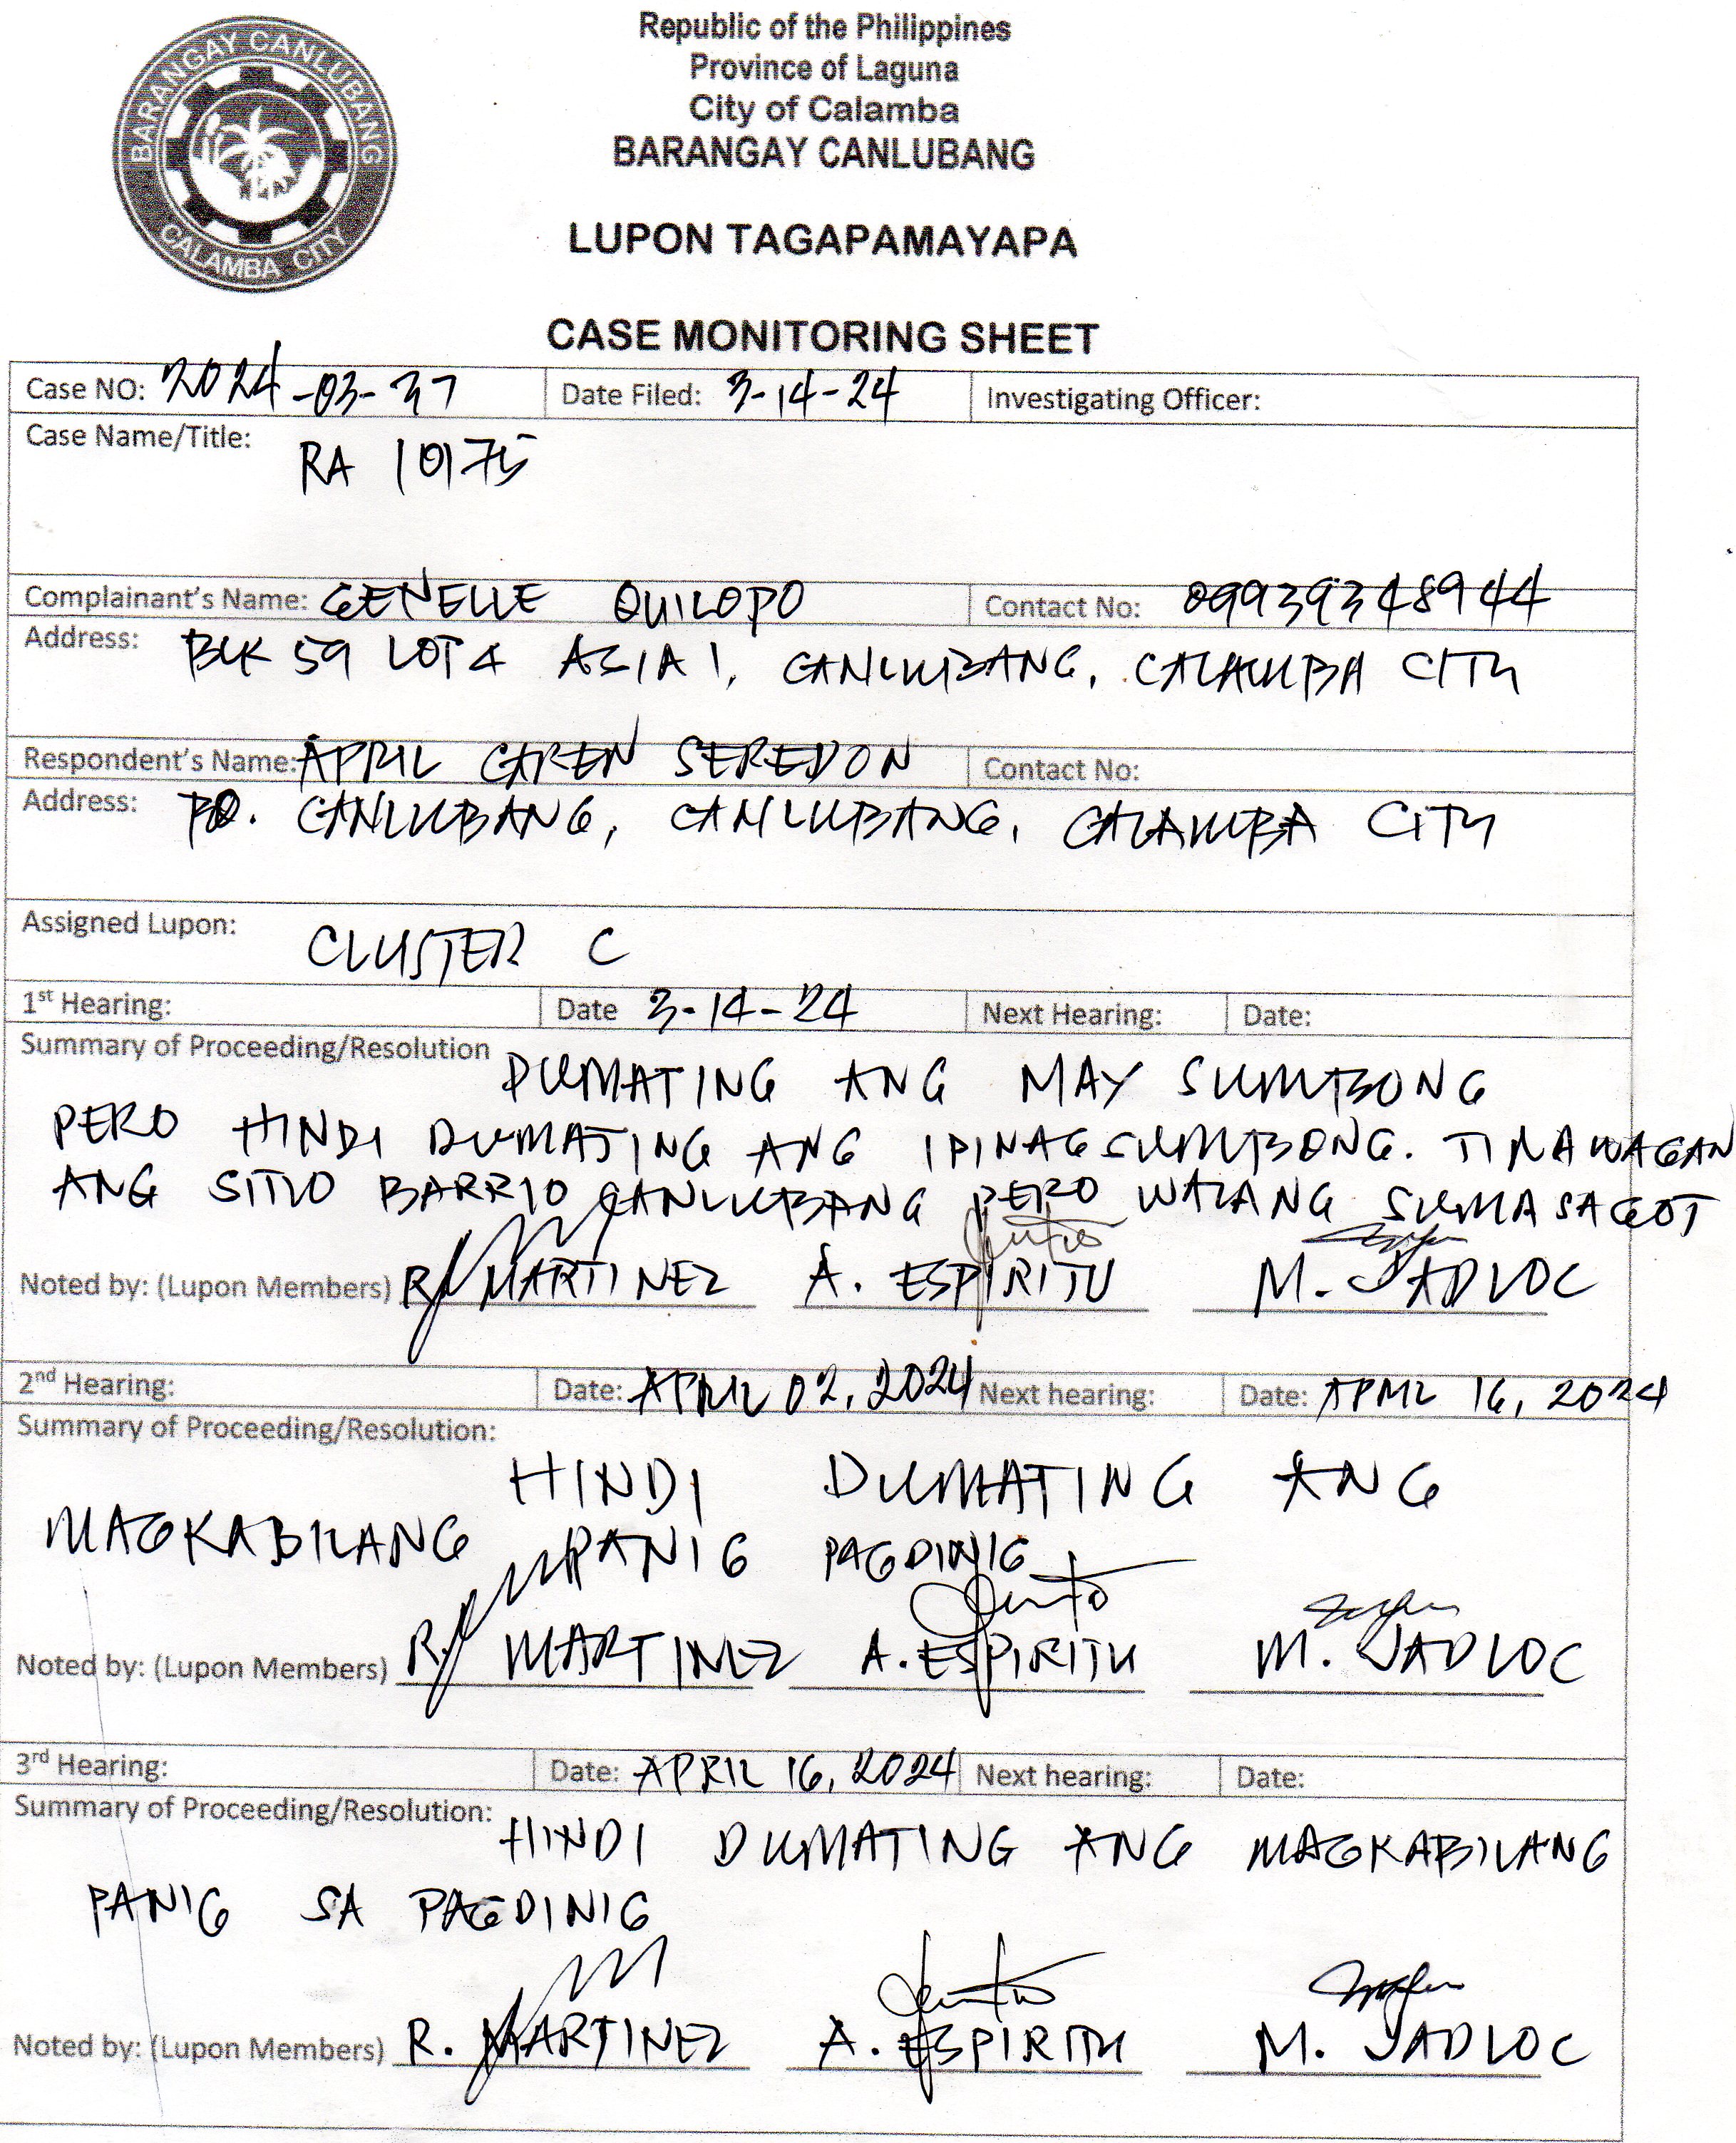 BARANGAY CANLUBANG
CALAMBA CITY
Republic of the Philippines
Province of Laguna
City of Calamba
BARANGAY CANLUBANG
LUPON TAGAPAMAYAPA
CASE MONITORING SHEET
Case NO: 2024-03-37 Date Filed: 3-14-24 Investigating Officer:
Case Name/Title:
RA 10175
Complainant's Name: GENELLE QUILOPO Contact No: 09939348944
Address: BLK 59 LOT 4 ASIA 1, CANLUBANG, CALAMBA CITY
Respondent's Name: APRIL CAREN SEREDON Contact No:
Address: BO. CANLUBANG, CANLUBANG, CALAMBA CITY
Assigned Lupon: CLUSTER C
1st Hearing: Date 3-14-24 Next Hearing: Date:
Summary of Proceeding/Resolution DUMATING ANG MAY SUMBONG
PERO HINDI DUMATING ANG IPINAGSUMBONG. TINAWAGAN
ANG SITIO BARRIO CANLUBANG PERO WALANG SUMASAGOT
Noted by: (Lupon Members) R. MARTINEZ A. ESPIRITU M. JADLOC
2nd Hearing: Date: APRIL 02, 2024 Next hearing: Date: APRIL 16, 2024
Summary of Proceeding/Resolution:
HINDI DUMATING ANG
MAGKABILANG PANIG PAGDINIG
Noted by: (Lupon Members) R. MARTINEZ A. ESPIRITU M. JADLOC
3rd Hearing: Date: APRIL 16, 2024 Next hearing: Date:
Summary of Proceeding/Resolution: HINDI DUMATING ANG MAGKABILANG
PANIG SA PAGDINIG
Noted by: (Lupon Members) R. MARTINEZ A. ESPIRITU M. JADLOC